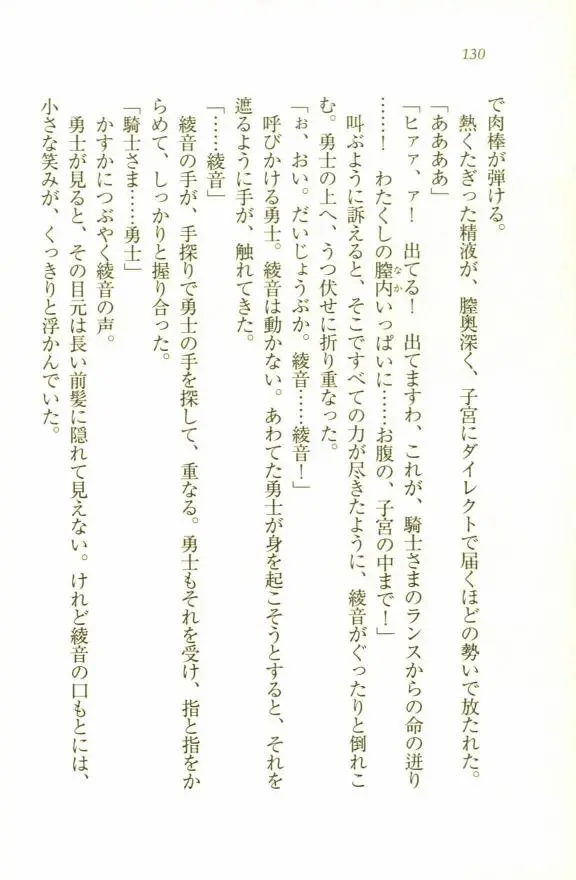 130
で肉棒が弾ける。
熱くたぎった精液が、膣奥深く、子宮にダイレクトで届くほどの勢いで放たれた。
「ああああ」
「ヒァァ、ァ!　出てる!　出てますわ、これが、騎士さまのランスからの命の迸り
……!　わたくしの膣内いっぱいに……お腹の、子宮の中まで!」
なか
叫ぶように訴えると、そこですべての力が尽きたように、綾音がぐったりと倒れこ
む。勇士の上へ、うつ伏せに折り重なった。
「ぉ、おい。だいじょうぶか。綾音……綾音!」
呼びかける勇士。綾音は動かない。あわてた勇士が身を起こそうとすると、それを
遮るように手が、触れてきた。
「……綾音」
綾音の手が、手探りで勇士の手を探して、重なる。勇士もそれを受け、指と指をか
らめて、しっかりと握り合った。
「騎士さま……勇士」
かすかにつぶやく綾音の声。
勇士が見ると、その目元は長い前髪に隠れて見えない。けれど綾音の口もとには、
小さな笑みが、くっきりと浮かんでいた。